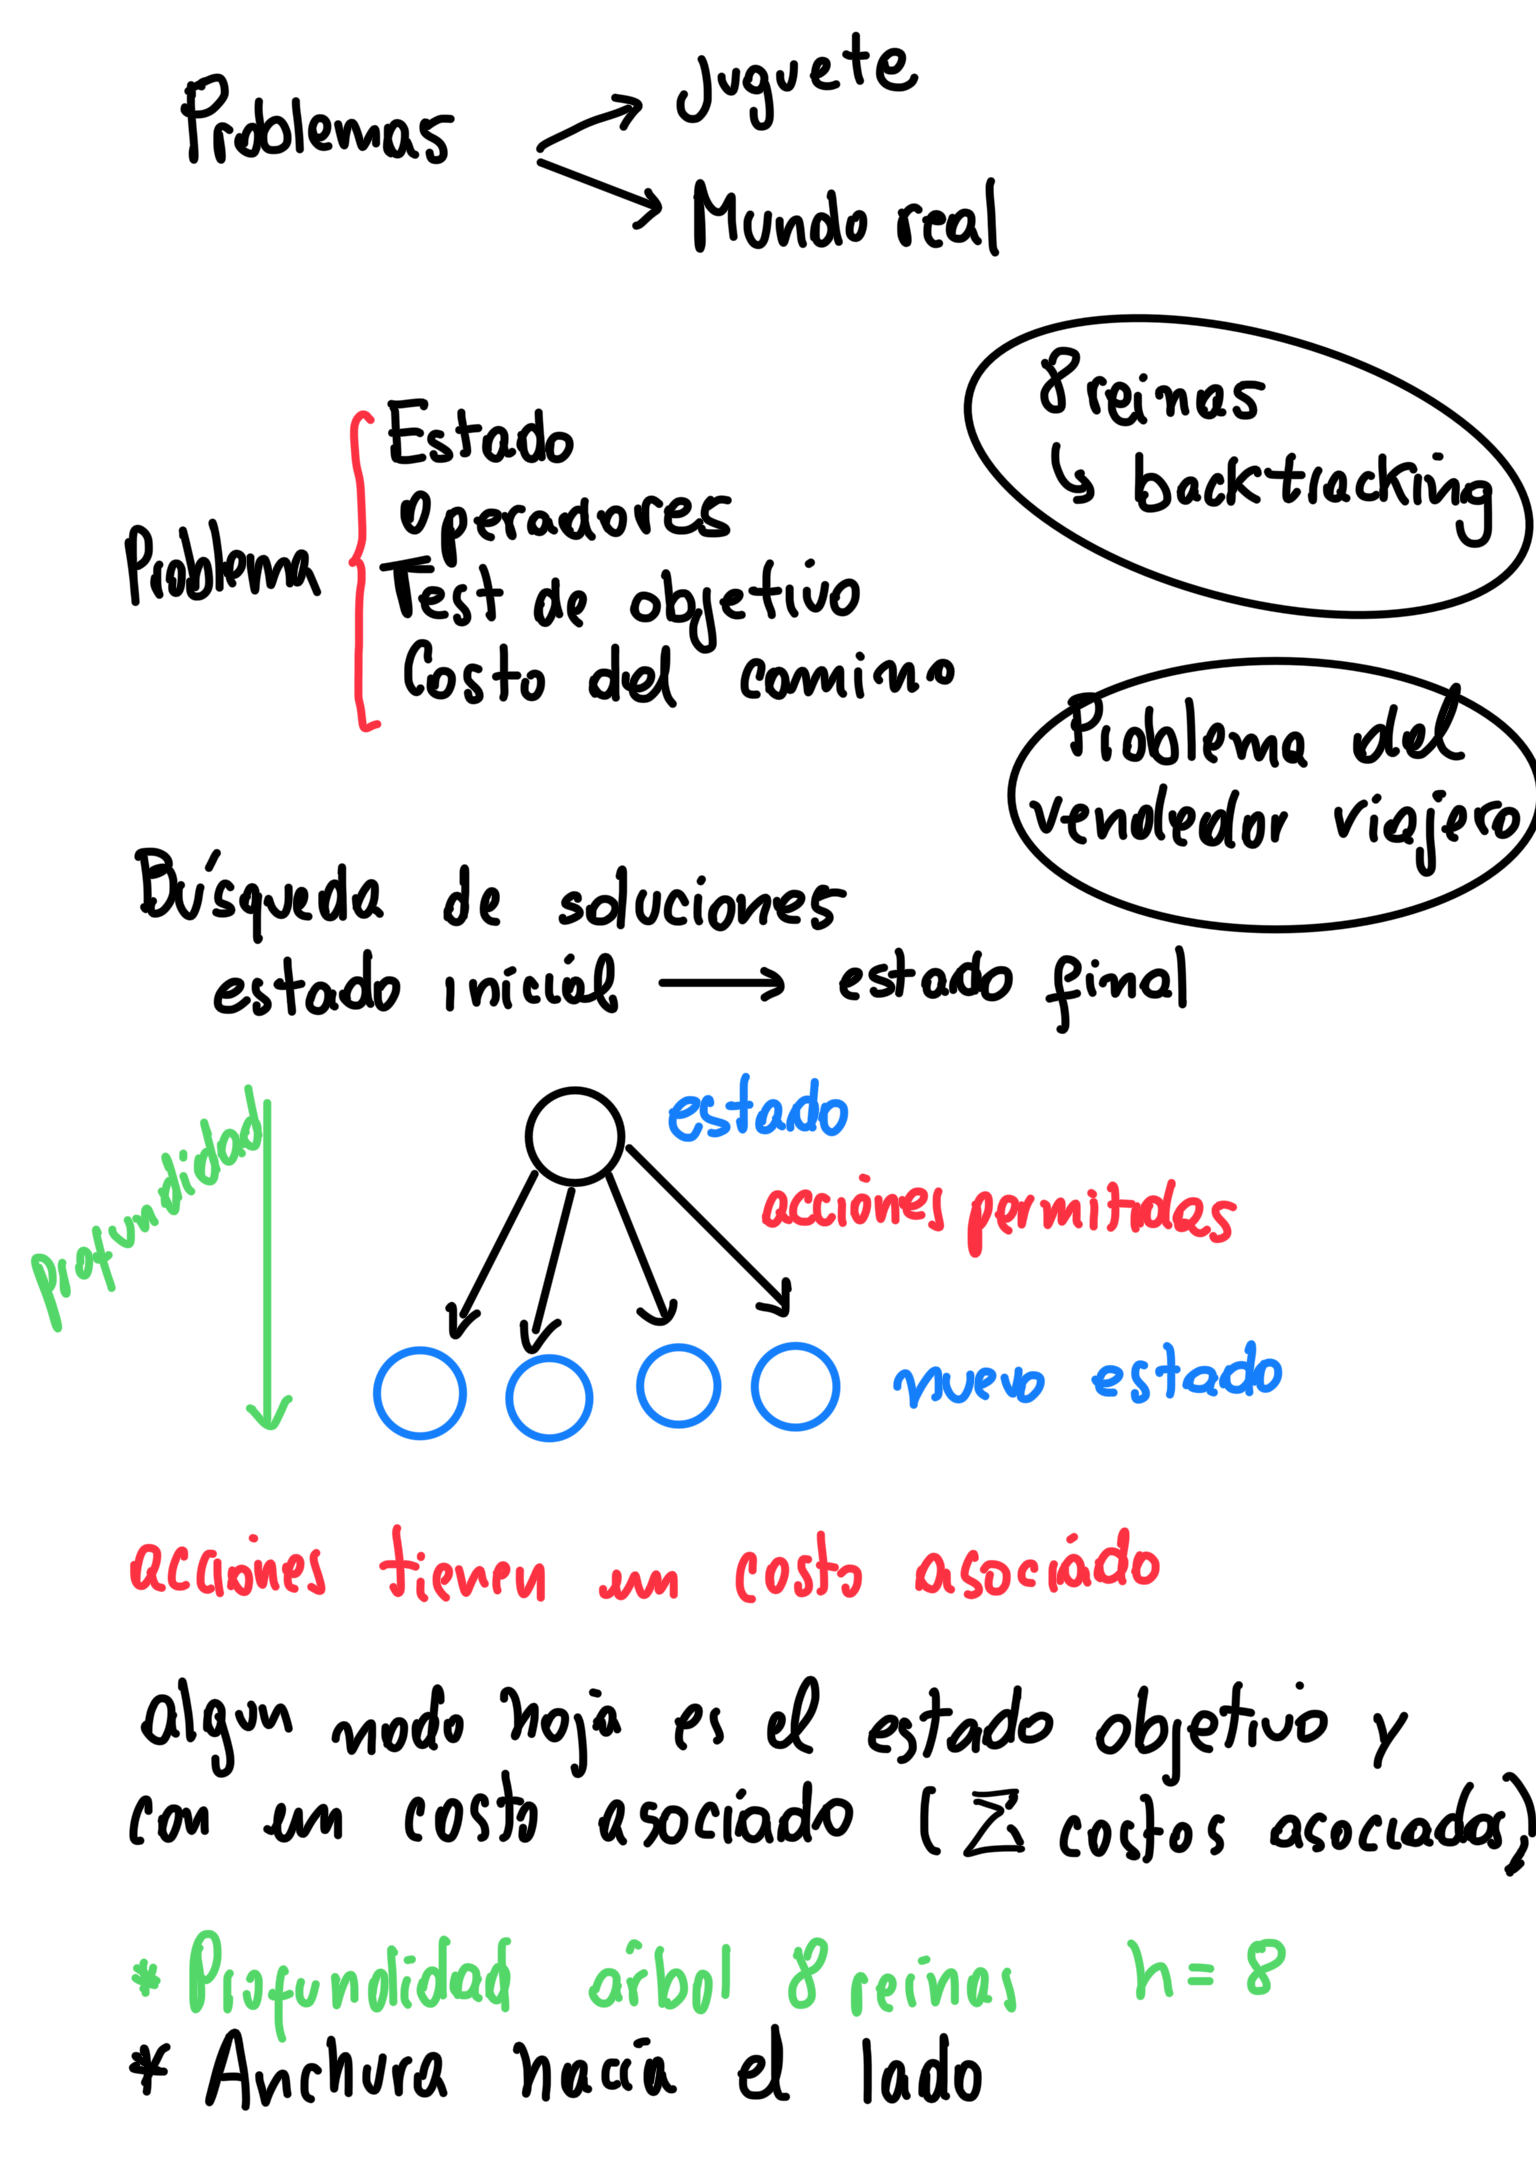 Problemas
Juguete
Mundo real
8 reinas
backtracking
Problema
Estado
Operadores
Test de objetivo
Costo del camino
Problema del
vendedor viajero
Búsqueda de soluciones
estado inicial → estado final
profundidad
estado
acciones permitidas
nuevo estado
acciones tienen un costo asociado
algun nodo hoja es el estado objetivo y
con un costo asociado (Σ costos asociados)
* Profundidad árbol 8 reinas h = 8
* Anchura hacia el lado